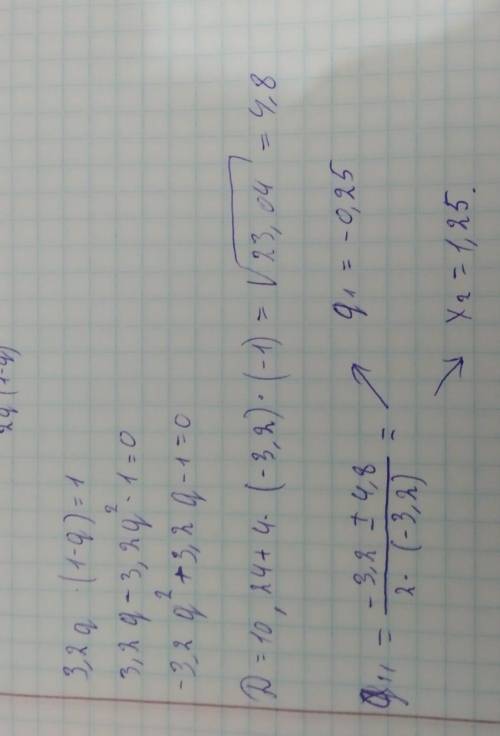 2q (1-q)
3,2q · (1-q) = 1
3,2q - 3,2q² - 1 = 0
-3,2q² + 3,2q - 1 = 0
D = 10,24 + 4 · (-3,2) · (-1) = √23,04 = 4,8
q₁₁ = (-3,2 ± 4,8) / (2 · (-3,2)) = ↗ q₁ = -0,25
↘ x₂ = 1,25.